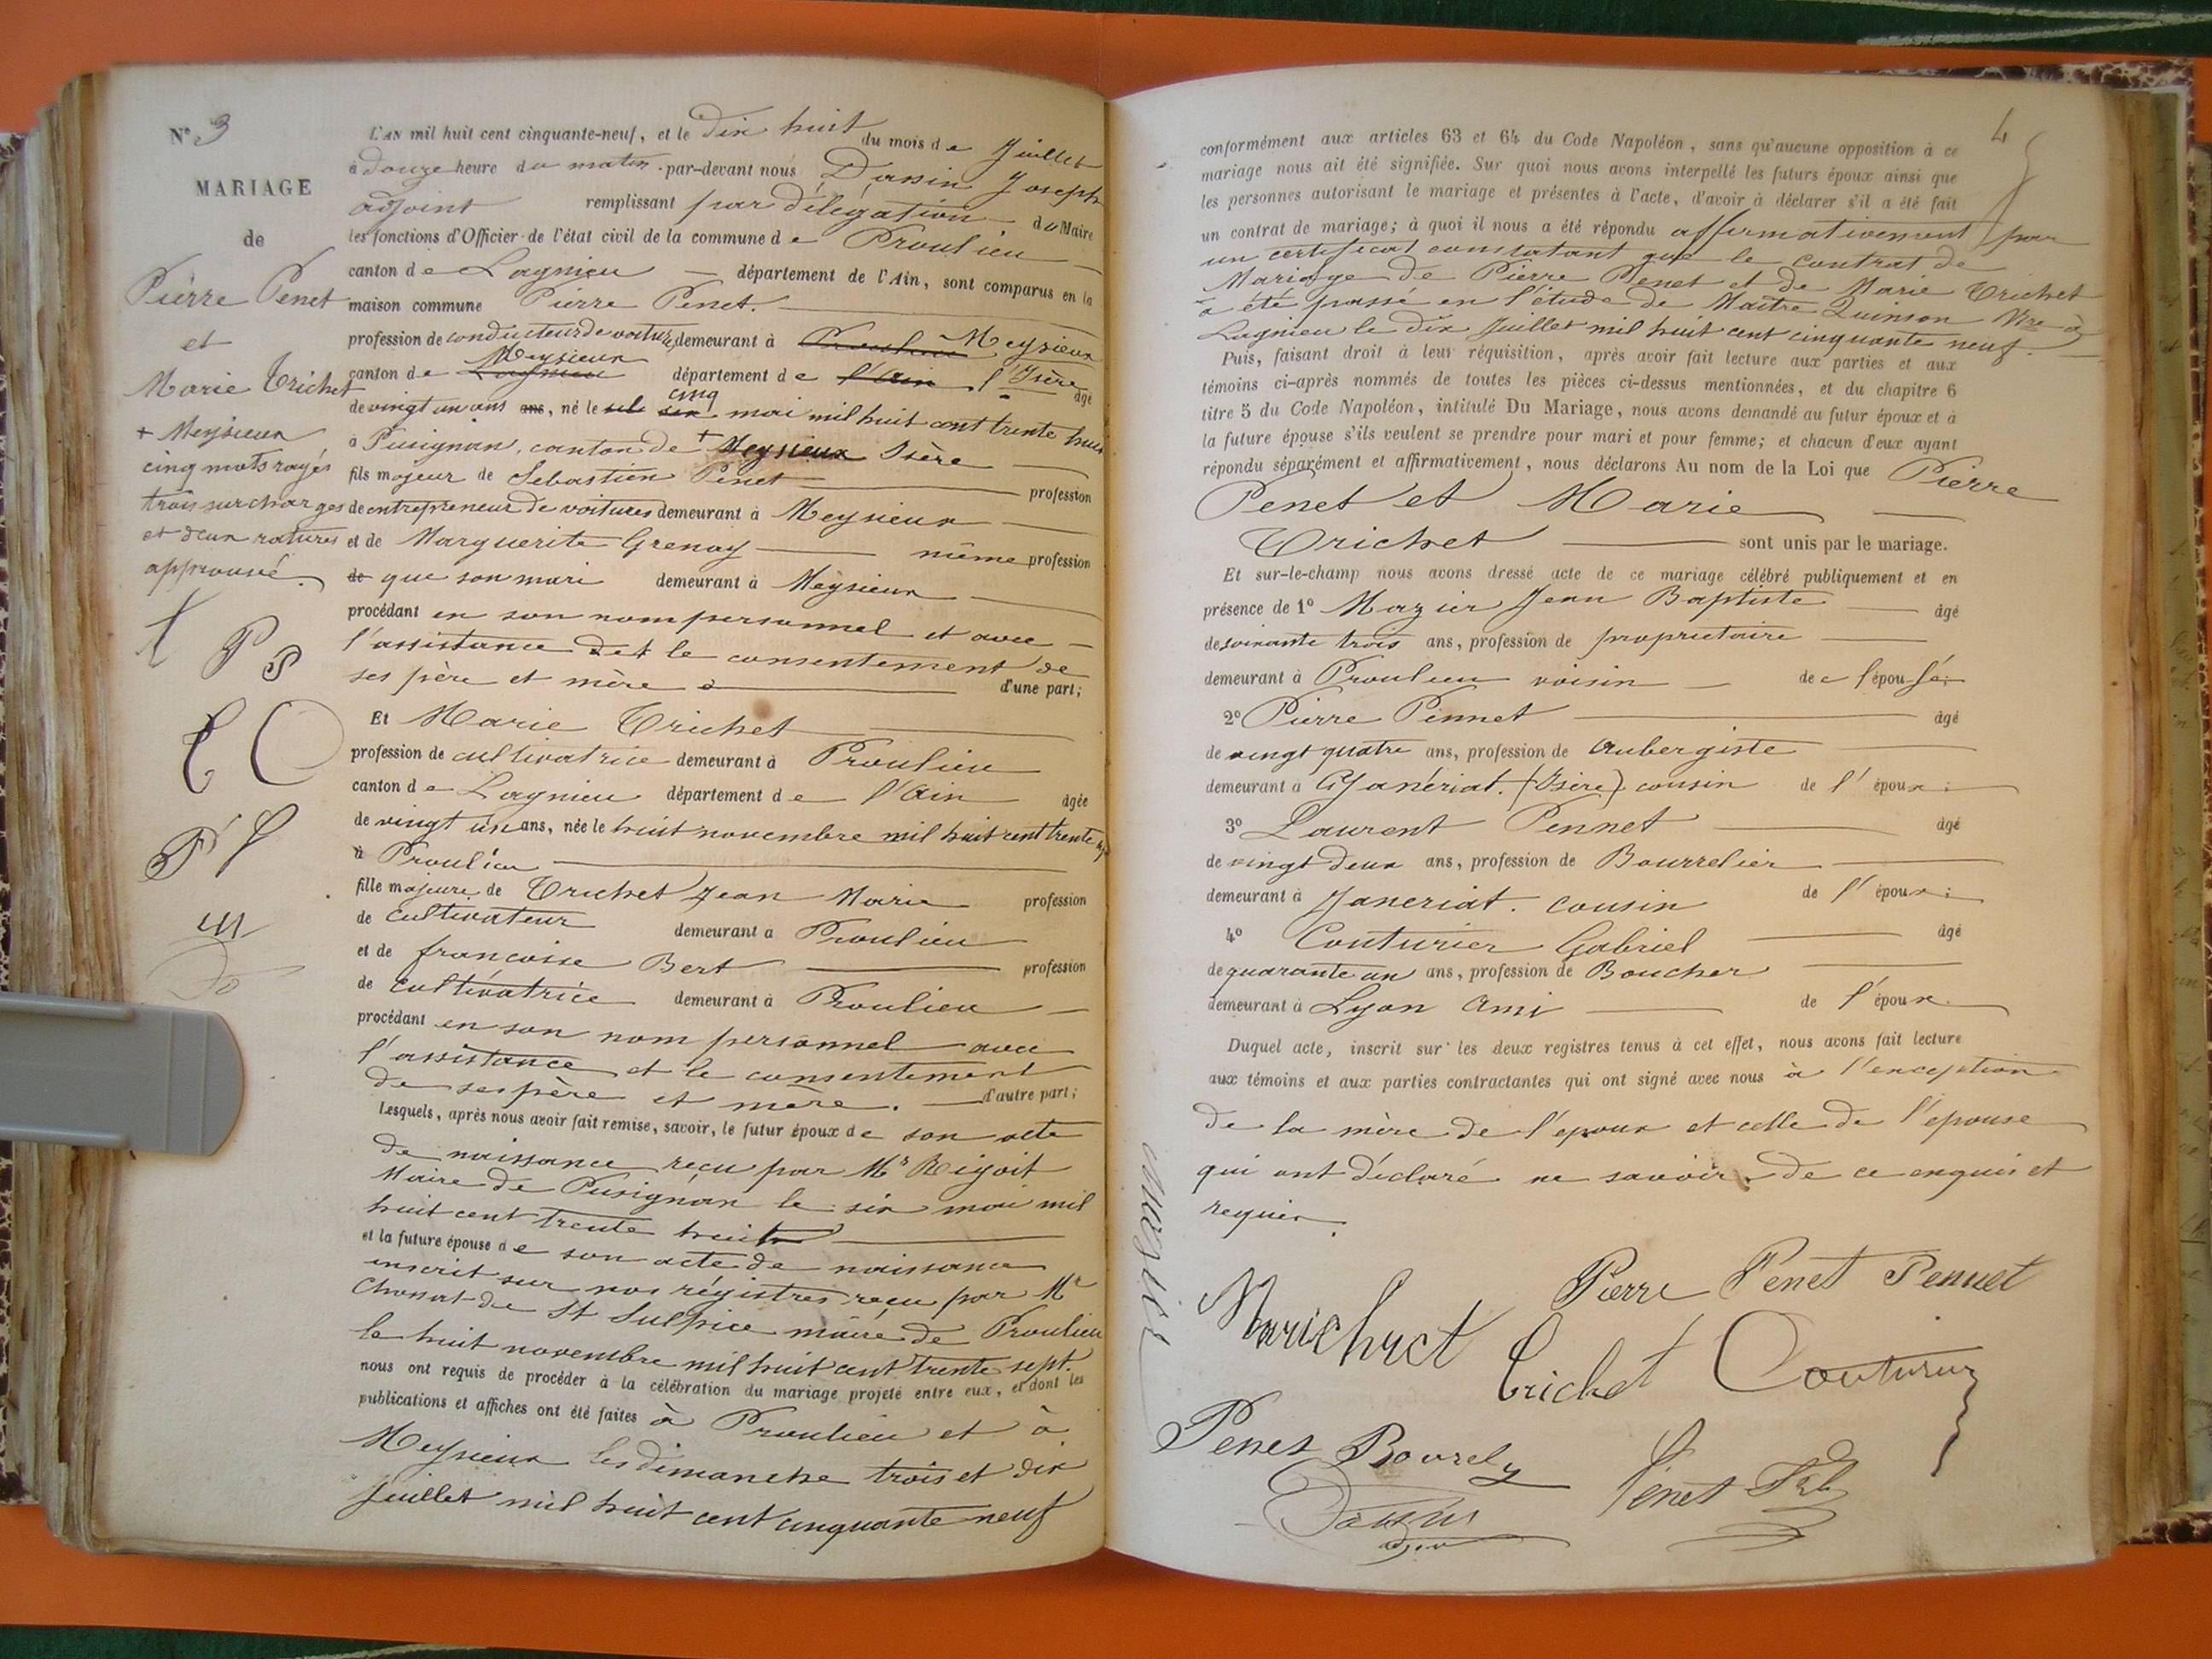 N° 3
MARIAGE
de
Pierre Penet
et
Marie Trichet
+ Meysieux
cinq mots rayés
trois surcharges
et deux ratures
approuvé.
P P
T C
L'AN mil huit cent cinquante-neuf, et le dix huit du mois de Juillet
à douze heure du matin par-devant nous Dassin Joseph
adjoint remplissant par délégation du Maire
les fonctions d'Officier de l'état civil de la commune de Proulieu
canton de Lagnieu département de l'Ain, sont comparus en la
maison commune Pierre Penet.
profession de conducteur de voitures, demeurant à Proulieu Meysieux
canton de Lagnieu Meysieux département de l'Ain l'Isère âgé
de vingt un ans ans, né le cinq mai mil huit cent trente huit
à Pusignan, canton de + Meysieux Isère
fils majeur de Sebastien Penet profession
de entrepreneur de voitures demeurant à Meysieux
et de Marguerite Grenay même profession
de que son mari demeurant à Meysieux
procédant en son nom personnel et avec
l'assistance et le consentement de
ses père et mère d'une part;
Et Marie Trichet
profession de cultivatrice demeurant à Proulieu
canton de Lagnieu département de l'Ain âgée
de vingt un ans, née le huit novembre mil huit cent trente sept
à Proulieu
fille majeure de Trichet Jean Marie profession
de cultivateur demeurant à Proulieu
et de francoise Bert profession
de cultivatrice demeurant à Proulieu
procédant en son nom personnel avec
l'assistance et le consentement
de ses père et mère. d'autre part;
Lesquels, après nous avoir fait remise, savoir, le futur époux de son acte
de naissance reçu par Mr
Maire de Pusignan le six mai mil
huit cent trente huit
et la future épouse de son acte de naissance
inscrit sur nos régistres reçu par Mr
de St Sulpice maire de Proulieu
le huit novembre mil huit cent trente sept.
nous ont requis de procéder à la célébration du mariage projeté entre eux, et dont les
publications et affiches ont été faites à Proulieu et à
Meysieux les dimanche trois et dix
juillet mil huit cent cinquante neuf
4
conformément aux articles 63 et 64 du Code Napoléon, sans qu'aucune opposition à ce
mariage nous ait été signifiée. Sur quoi nous avons interpellé les futurs époux ainsi que
les personnes autorisant le mariage et présentes à l'acte, d'avoir à déclarer s'il a été fait
un contrat de mariage; à quoi il nous a été répondu affirmativement par
un certificat constatant que le contrat de
Mariage de Pierre Penet et de Marie Trichet
a été passé en l'étude de Maître Quinson Nre à
Lagnieu le dix Juillet mil huit cent cinquante neuf.
Puis, faisant droit à leur réquisition, après avoir fait lecture aux parties et aux
témoins ci-après nommés de toutes les pièces ci-dessus mentionnées, et du chapitre 6
titre 5 du Code Napoléon, intitulé Du Mariage, nous avons demandé au futur époux et à
la future épouse s'ils veulent se prendre pour mari et pour femme; et chacun d'eux ayant
répondu séparément et affirmativement, nous déclarons Au nom de la Loi que Pierre
Penet et Marie
Trichet sont unis par le mariage.
Et sur-le-champ nous avons dressé acte de ce mariage célébré publiquement et en
présence de 1° Mazier Jean Baptiste âgé
de soixante trois ans, profession de proprietaire
demeurant à Proulieu voisin de l'épousé;
2° Pierre Pennet âgé
de vingt quatre ans, profession de aubergiste
demeurant à Janériat. (Isère) cousin de l'époux;
3° Laurent Pennet âgé
de vingt deux ans, profession de Bourrelier
demeurant à Janeriat. cousin de l'époux;
4° Couturier Gabriel âgé
de quarante un ans, profession de Boucher
demeurant à Lyon Ami de l'époux.
Duquel acte, inscrit sur les deux registres tenus à cet effet, nous avons fait lecture
aux témoins et aux parties contractantes qui ont signé avec nous à l'exception
de la mère de l'époux et celle de l'epouse
qui ont déclaré ne savoir de ce enquis et
requis.
Pierre Penet Pennet
Trichet Couturier
Penet
Penet